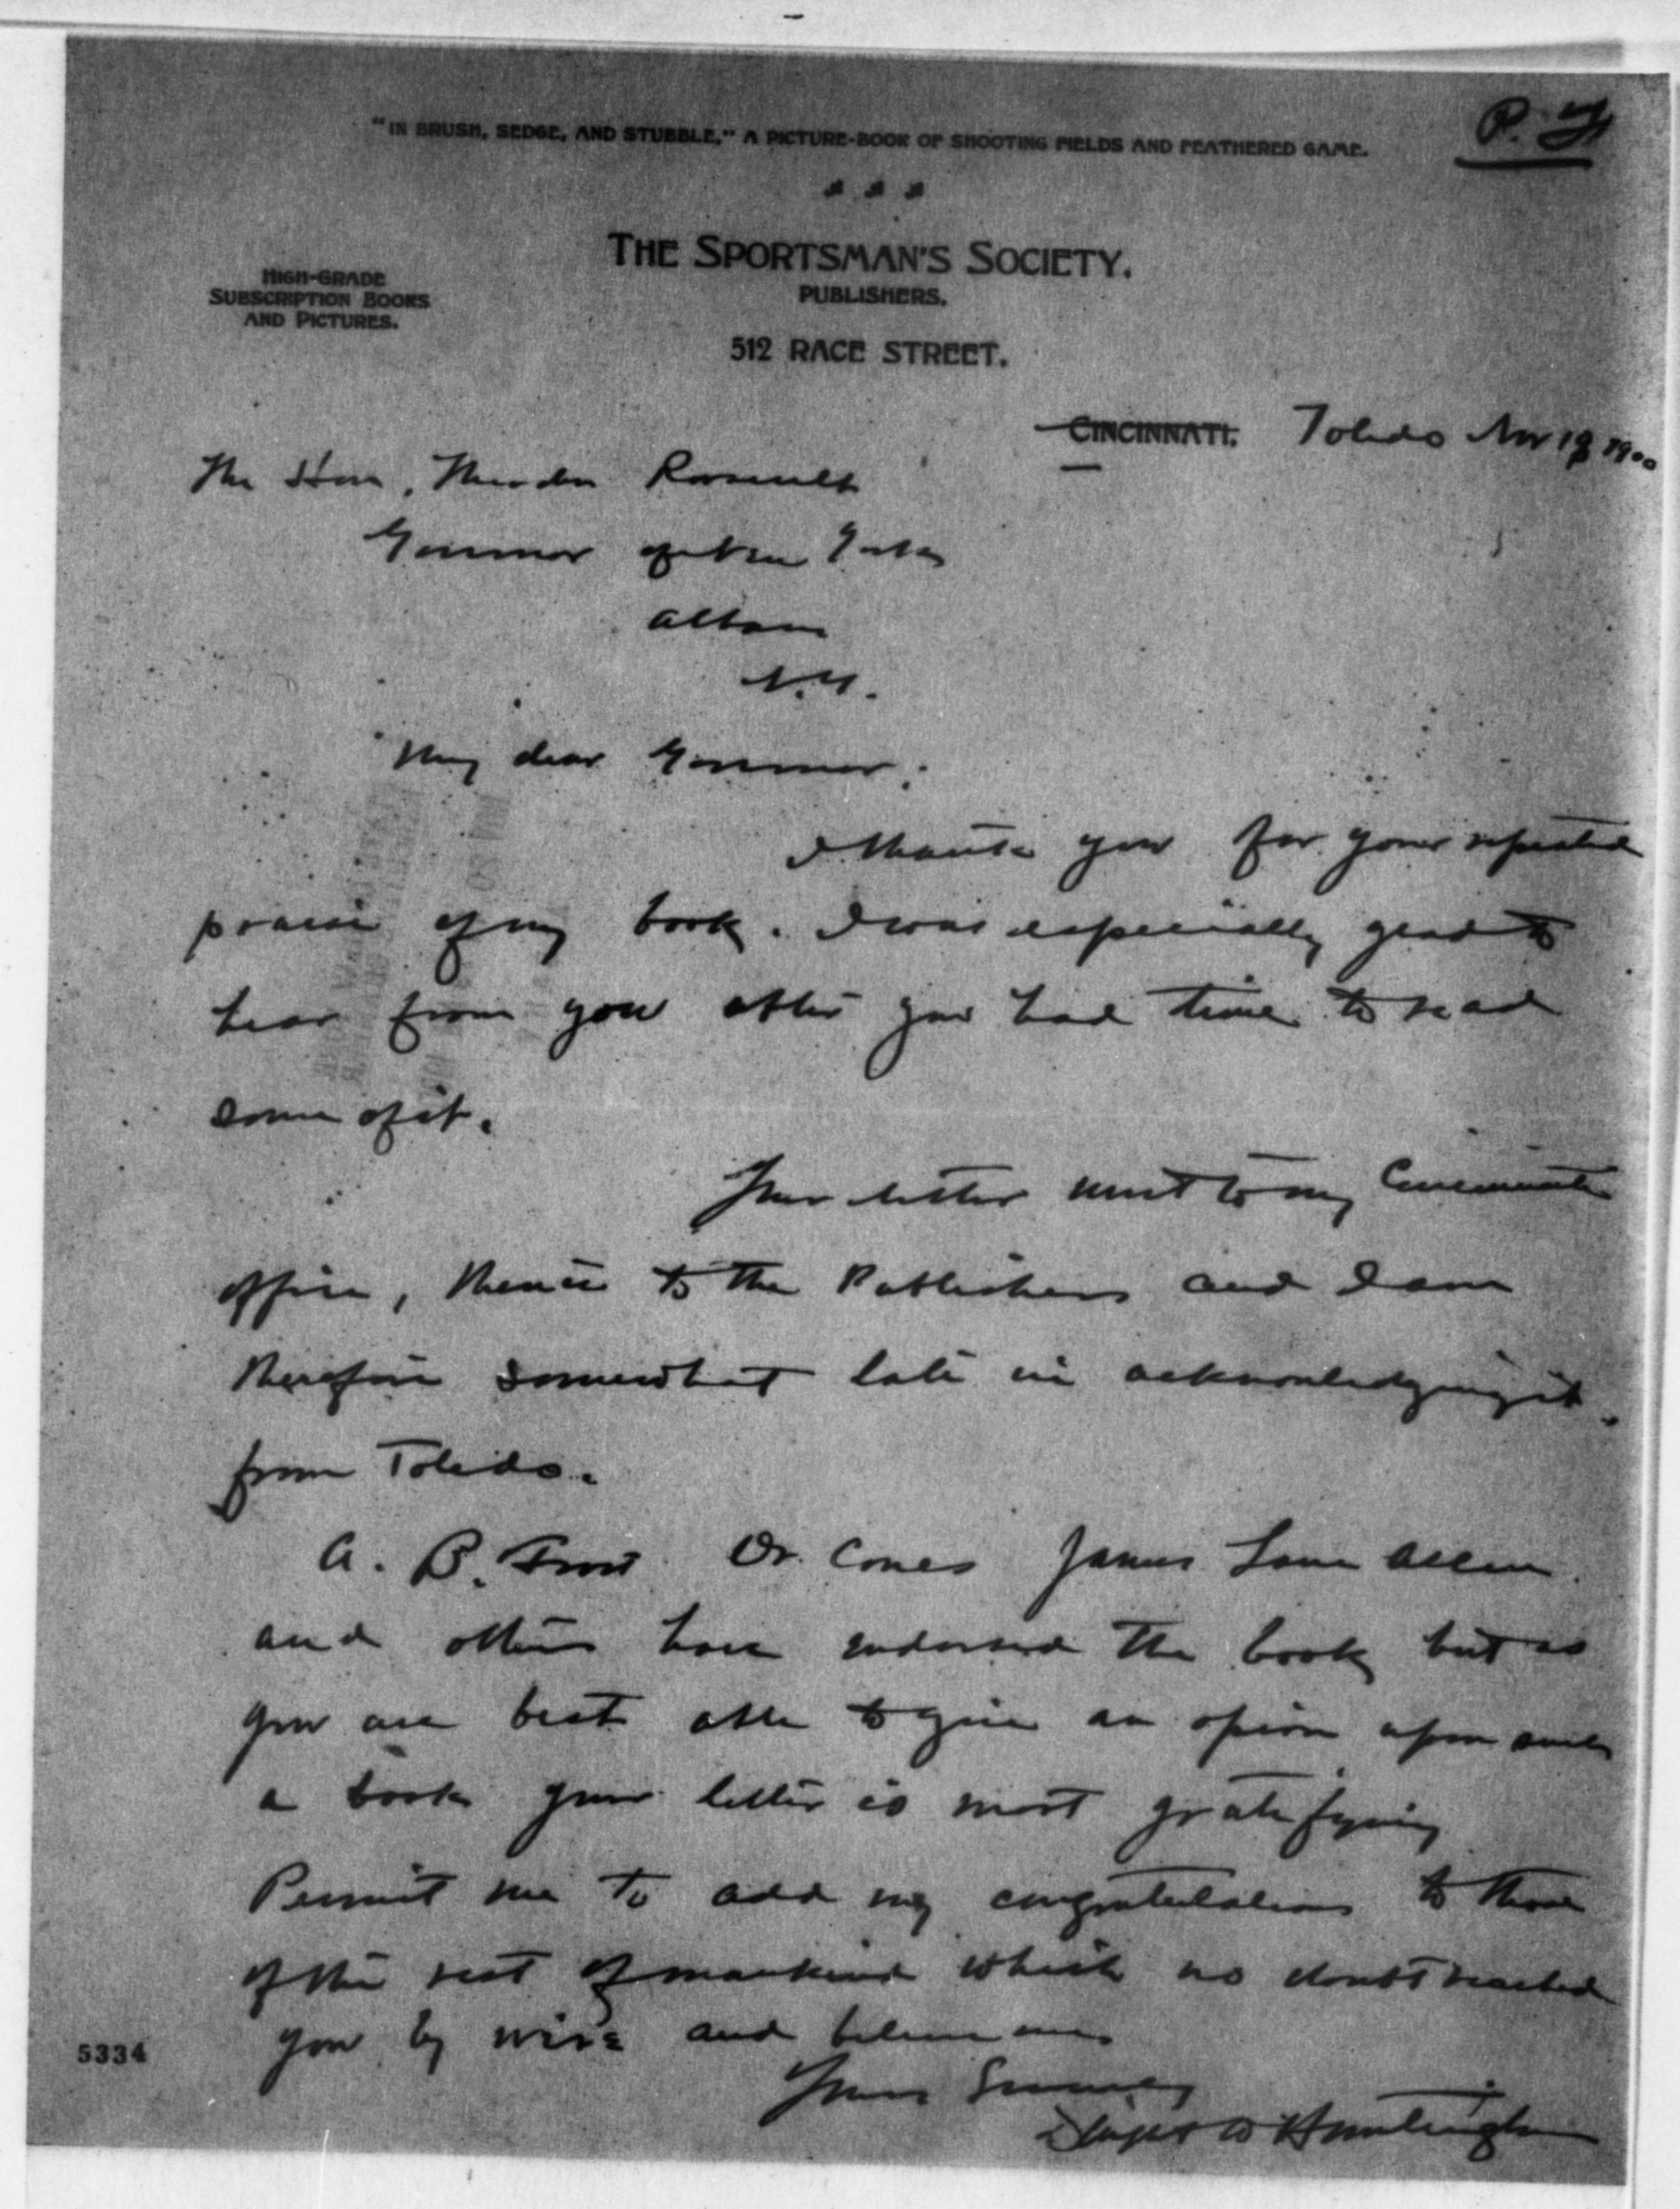 P. F.
"IN BRUSH, SEDGE, AND STUBBLE," A PICTURE-BOOK OF SHOOTING FIELDS AND FEATHERED GAME.
THE SPORTSMAN'S SOCIETY.
PUBLISHERS.
HIGH-GRADE
SUBSCRIPTION BOOKS
AND PICTURES.
512 RACE STREET.
CINCINNATI. Toledo Nov 1900
The Hon. Theodore Roosevelt
Governor of New York
Albany
N.Y.
My dear Governor:
I thank you for your repeated
praise of my book. I was especially glad to
hear from you after you had time to read
some of it.
Your letter went to my Cincinnati
office, thence to the Publishers and I am
therefore somewhat late in acknowledging it
from Toledo.
A. B. Frost Dr. Coues James Lane Allen
and others have endorsed the book but as
you are best able to give an opinion upon such
a book your letter is most gratifying
Permit me to add my congratulations to those
of the rest of mankind which no doubt reached
you by wire and believe me
Yours Sincerely
Dwight W Huntington
5334